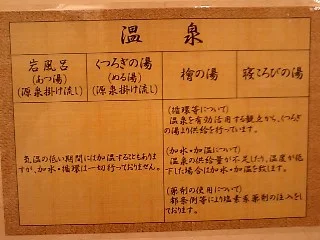 温泉
岩風呂
(あつ湯)
(源泉掛け流し)
くつろぎの湯
(ぬる湯)
(源泉掛け流し)
檜の湯
寝ころびの湯
気温の低い期間には加温することもありま
すが、加水・循環は一切行っておりません。
(循環等について)
温泉を有効活用する観点から、くつろぎ
の湯より供給を行っています。
(加水・加温について)
温泉の供給量が不足したり、温度が低
下した場合は加水・加温を致します。
(薬剤の使用について)
都条例等により塩素系薬剤の注入をし
ております。